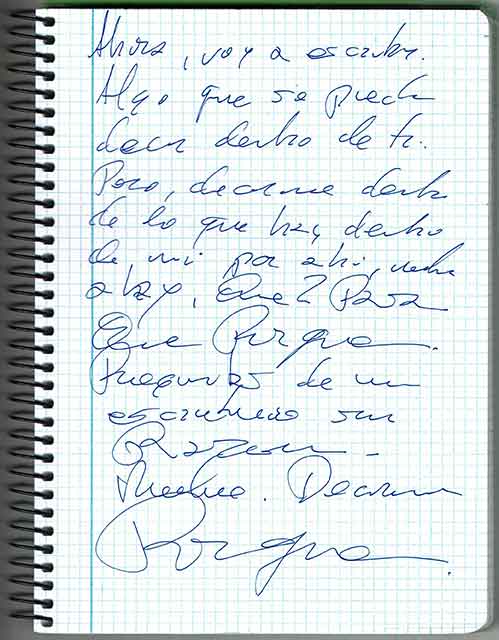 Ahora, voy a escribir.
Algo que se pueda
decir dentro de ti.
Pero, decirme dentro
de lo que hay dentro
de mi por ahi, nada
a hay, Que? Para
Que Porque.
Preguntas de un
escribir sin
Razon -
Decirme
Porque.